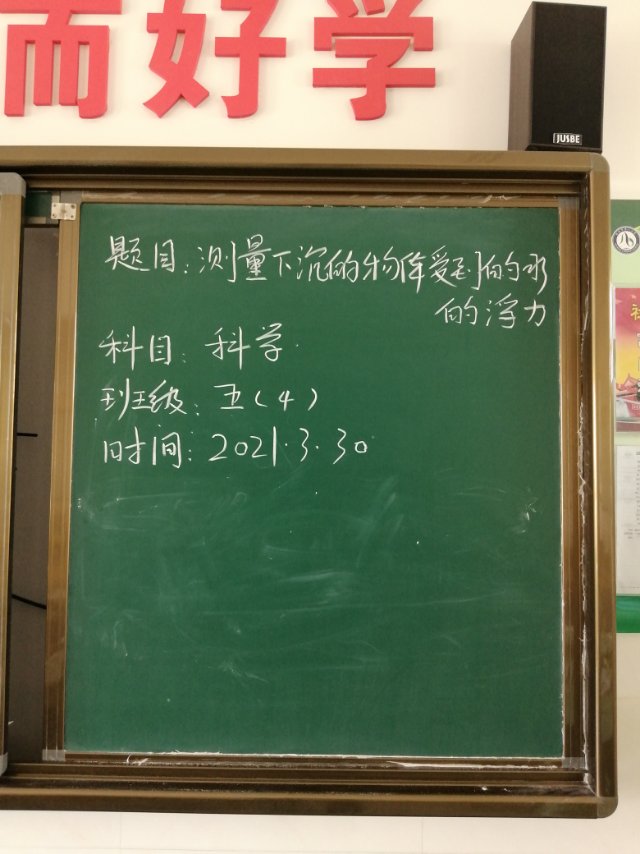 而好学
JUSBE
题目:测量下沉的物体受到的水
的浮力
科目:科学
班级:五(4)
时间:2021.3.30